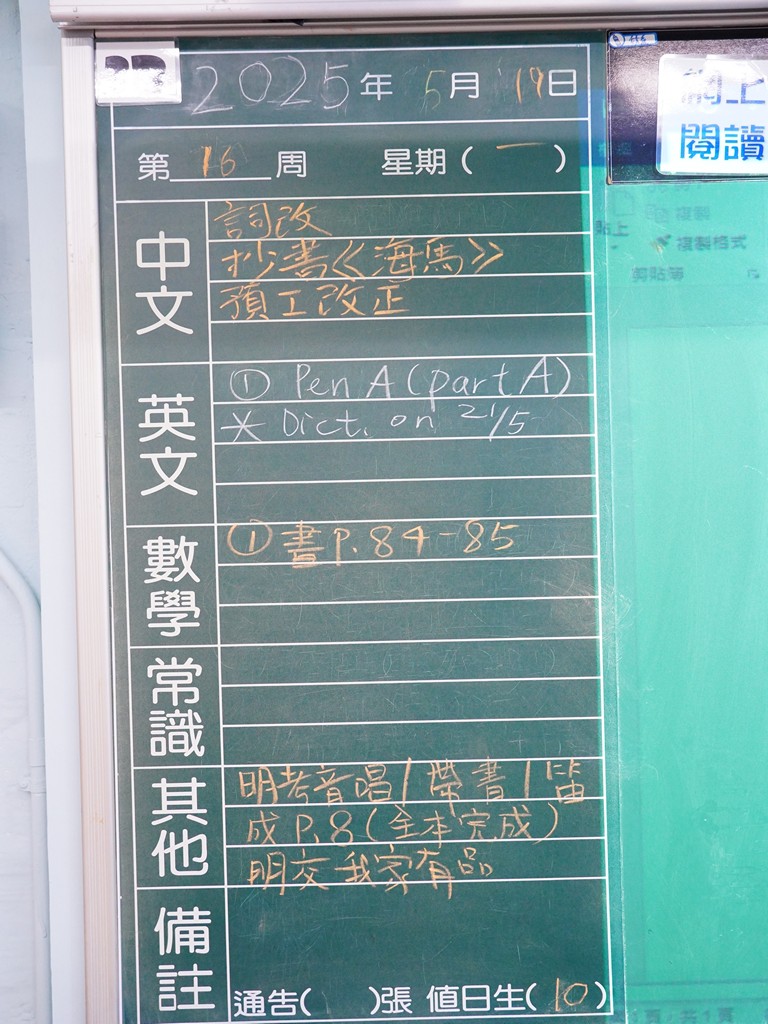 2025年 5月 19日
第 16 周 星期(一)
中文
詞改
抄書《海馬》
預工改正
英文
① Pen A (part A)
* Dict. on 21/5
數學
① 書 P.84-85
常識
其他
明考音唱/帶書/笛
成P.8(全本完成)
明交我家有品
備註
通告( )張 值日生(10)
網上
閱讀
複製
貼上
複製格式
剪貼簿